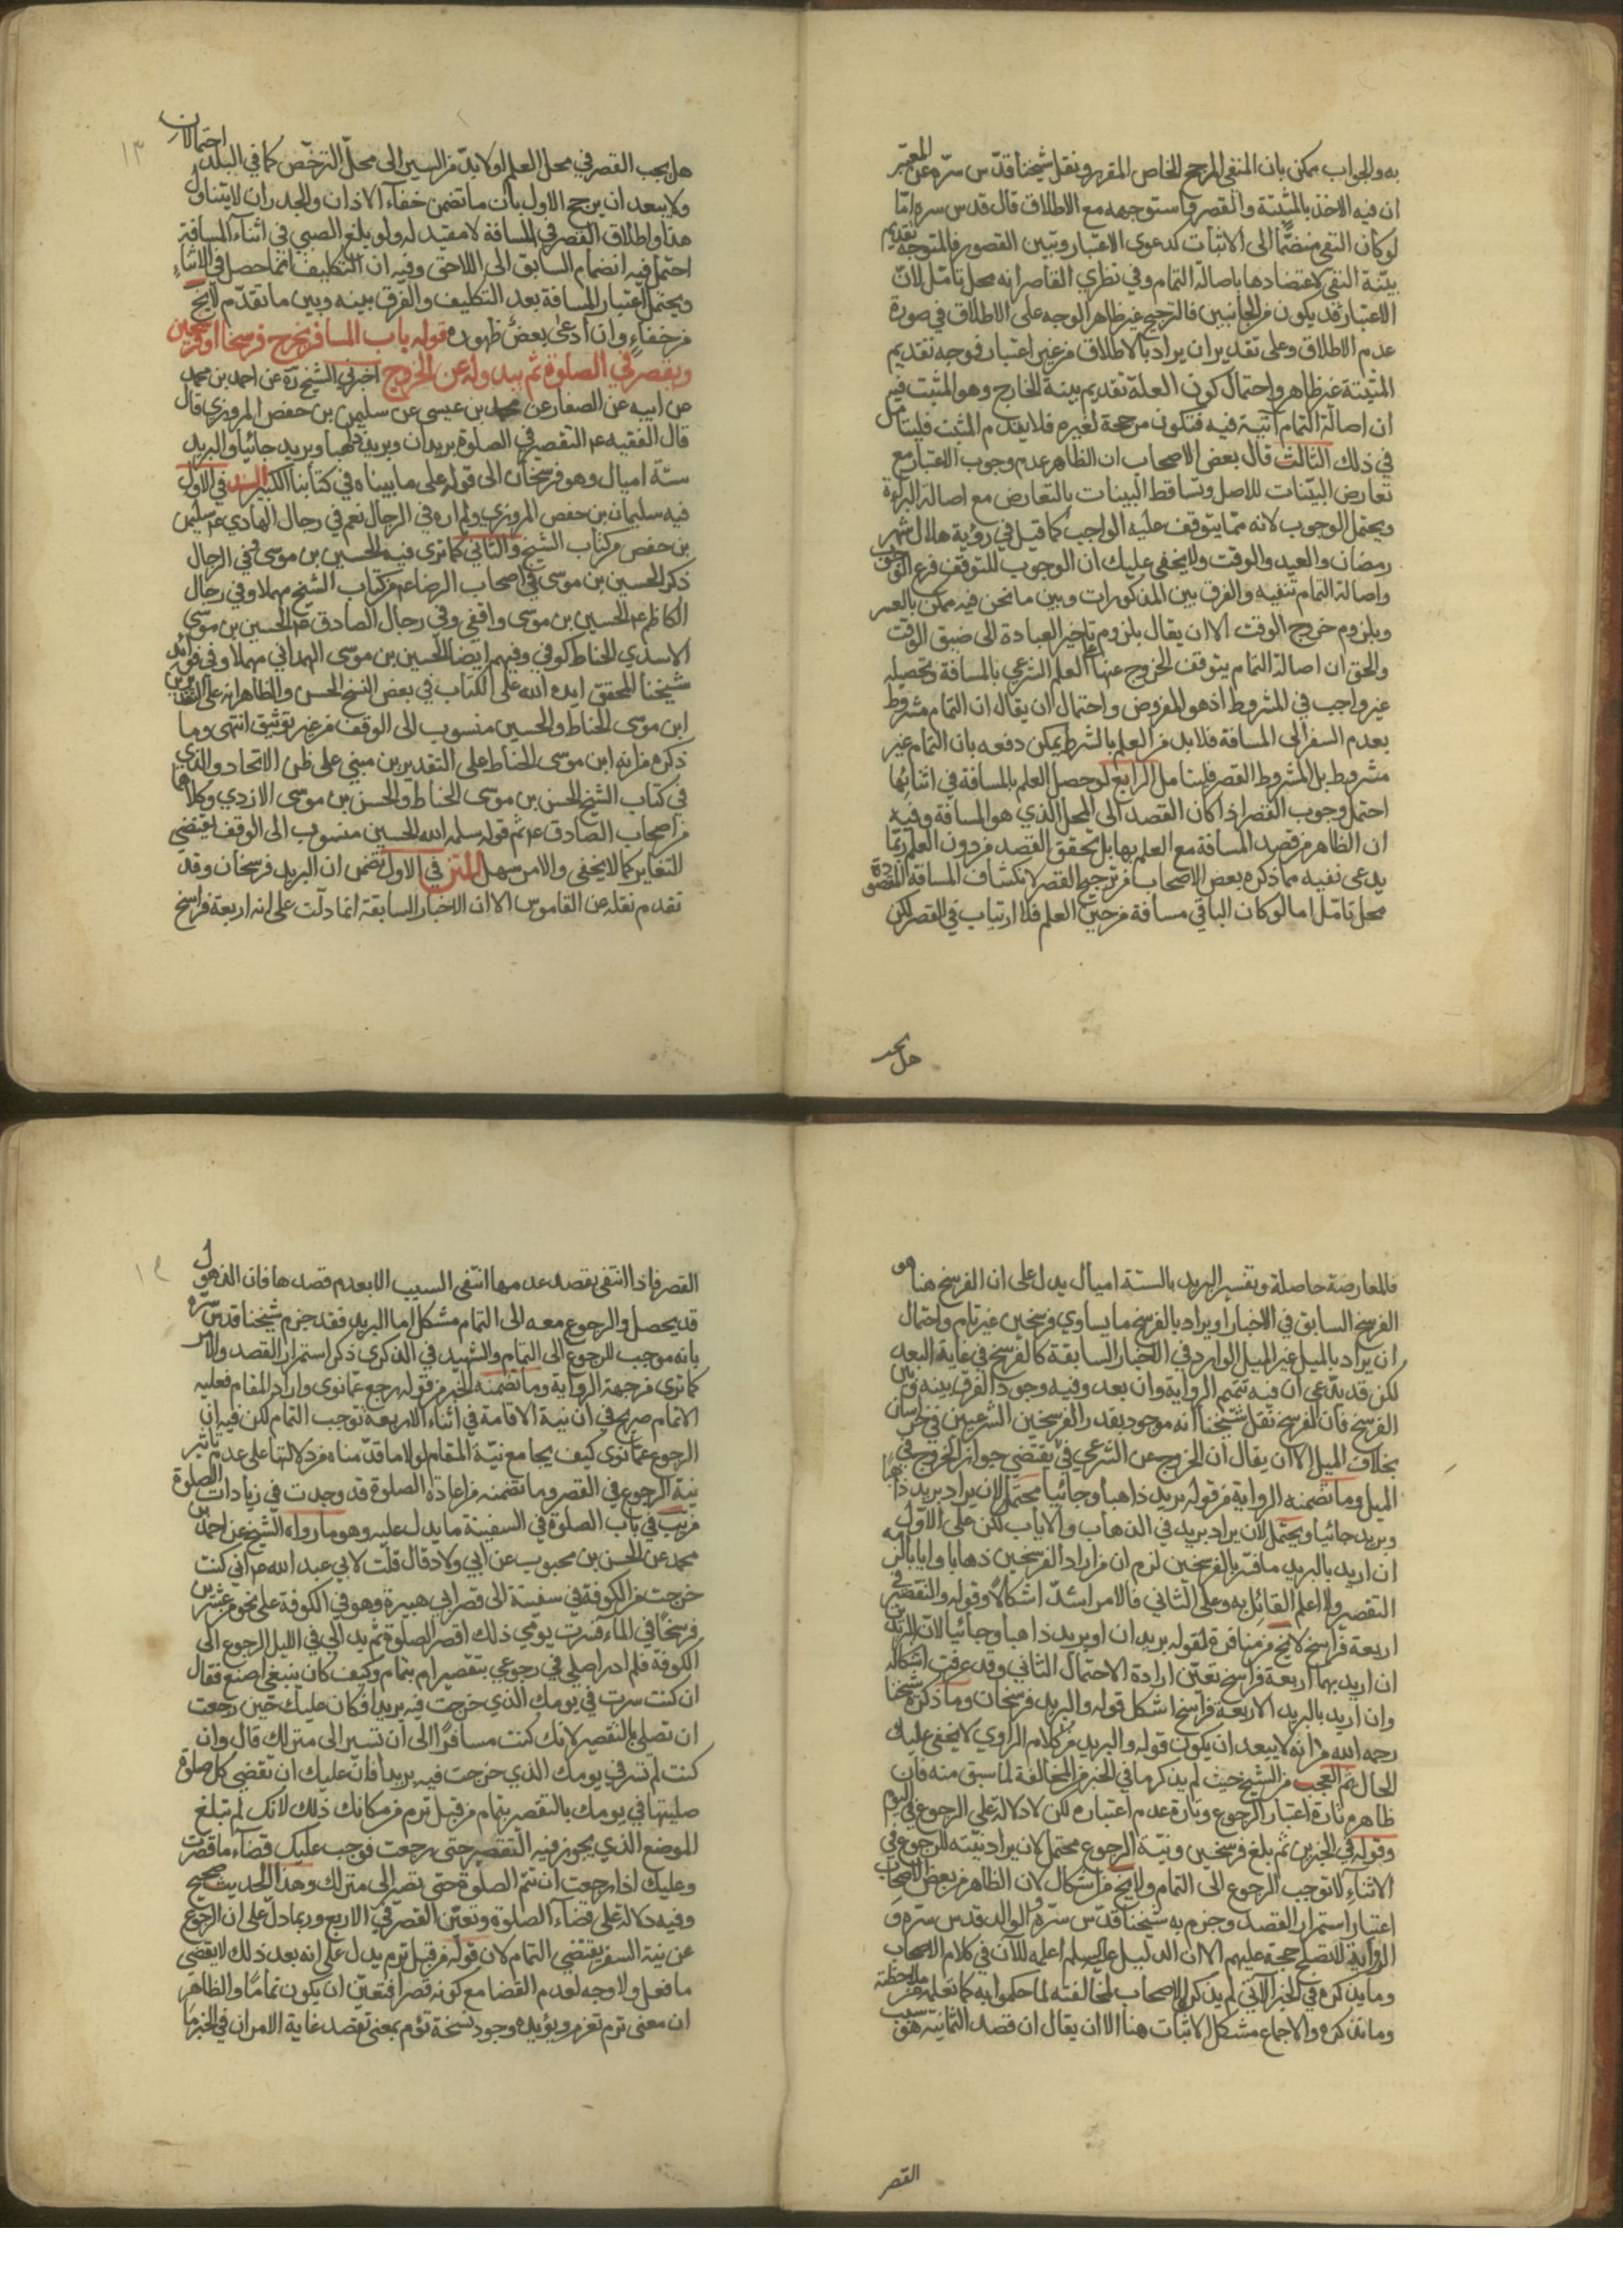 به والجواب ممكن بان المنفي المرجح الخاص المقرر ونقل شيخنا قدّس سرّه عن المعتبر
ان فيه الاخذ بالمثبتة والقصر وما ستوجهه مع الاطلاق قال قدس سره امّا
لو كان النفي منضمًّا الى الاثبات كدعوى الاعتبار وتبين القصور فالمتوجه تقديم
بيّنة النفي لاعتضادها باصالة التمام وفي نظري القاصر انه محل تامّل لانّ
الاعتبار قد يكون من الجانبين فالترجيح غير ظاهر الوجه على الاطلاق في صورة
عدم الاطلاق وعلى تقدير ان يراد بالاطلاق من غير اعتبار فوجه تقديم
المثبتة غير ظاهر واحتمال كون العلة تقديم بينة الخارج وهو المثبت فيه
ان اصالة التمام آتية فيه فتكون مرجحة لغيره فلا يقدم المثبت فليتامل
في ذلك الثالث قال بعض الاصحاب ان الظاهر عدم وجوب الاعتبار مع
تعارض البيّنات للاصل وتساقط البينات بالتعارض مع اصالة البراءة
ويحتمل الوجوب لانه ممّا يتوقف عليه الواجب كما قيل في رؤية هلال شهر
رمضان والعيد والوقت ولا يخفى عليك ان الوجوب للتوقف فرع التوقف
واصالة التمام تنفيه والفرق بين المذكورات وبين ما نحن فيه ممكن بالعسر
وبلزوم خروج الوقت الا ان يقال بلزوم تاخير العبادة الى ضيق الوقت
والحق ان اصالة التمام يتوقف الخروج عنها العلم الشرعي بالمسافة وتحصيله
غير واجب في المشروط اذ هو المفروض واحتمال ان يقال ان التمام مشروط
بعدم السفر الى المسافة فلا بد من العلم بالشرط يمكن دفعه بان التمام غير
مشروط بل المشروط القصر فليتامل الرابع لو حصل العلم بالمسافة في اثنائها
احتمل وجوب القصر اذا كان القصد الى المحل الذي هو المسافة وفيه
ان الظاهر من قصد المسافة مع العلم بها بل تحقق القصد من دون العلم ربّما
يدعى نفيه مما ذكره بعض الاصحاب من ترجيح القصر لانكشاف المسافة المقصودة
محل تامّل اما لو كان الباقي مسافة من حين العلم فلا ارتياب في القصر لكن
هل يجب
١٣
هل يجب القصر في محل العلم او لا بدّ من السير الى محلّ الترخّص كما في البلد احتمالان
ولا يبعد ان يرجح الاول بان ما تضمن خفاء الاذان والجدران لا يتناول
هذا واطلاق القصر في المسافة لا مقيد له ولو بلغ الصبي في اثناء المسافة
احتمل فيه انضمام السابق الى اللاحق وفيه ان التكليف انما حصل في الاثناء
ويحتمل اعتبار المسافة بعد التكليف والفرق بينه وبين ما تقدّم لا يخ
من خفاء وان ادعى بعض ظهوره قوله باب المسافر يخرج فرسخا او فرسخين
ويقصر في الصلوة ثم يبدو له عن الخروج اخبرني الشيخ ره عن احمد بن محمد
عن ابيه عن الصفار عن محمد بن عيسى عن سليمن بن حفص المروزي قال
قال الفقيه عم التقصير في الصلوة بريدان وبريد ذاهبا وبريد جائيا والبريد
ستة اميال وهو فرسخان الى قوله على ما بيناه في كتابنا الكبير السند في الاول
فيه سليمان بن حفص المروزي ولم اره في الرجال نعم في رجال الهادي عم سليمن
بن حفص من كتاب الشيخ والثاني كما ترى فيه الحسين بن موسى وفي الرجال
ذكر الحسين بن موسى في اصحاب الرضا عم من كتاب الشيخ مهملا وفي رجال
الكاظم عم الحسين بن موسى واقفي وفي رجال الصادق عم الحسين بن موسى
الاسدي الحناط كوفي وفيهم ايضا الحسين بن موسى الهمداني مهملا وفي فوائد
شيخنا المحقق ايده الله على الكتاب في بعض النسخ الحسن والظاهر انه على التقديرين
ابن موسى الحناط والحسين منسوب الى الوقف من غير توثيق انتهى وما
ذكره من انه ابن موسى الحناط على التقديرين مبني على ظن الاتحاد والذي
في كتاب الشيخ الحسن بن موسى الحناط والحسن بن موسى الازدي وكلاهما
من اصحاب الصادق عم ثم قوله سلمه الله الحسين منسوب الى الوقف يقتضي
التغاير كما لا يخفى والامر سهل المتن في الاول تضمن ان البريد فرسخان وقد
تقدم نقله عن القاموس الا ان الاخبار السابقة انما دلّت على انه اربعة فراسخ
فالمعارضة حاصلة وتفسير البريد بالستة اميال يدل على ان الفرسخ هنا هو
الفرسخ السابق في الاخبار او يراد بالفرسخ ما يساوي فرسخين غير تام واحتمال
ان يراد بالميل غير الميل الوارد في الاخبار السابقة كالفرسخ في غاية البعد
لكن قد يدّعى ان فيه تتميم الرواية وان بعد وفيه وجود الفرق بينه وبين
الفرسخ فان الفرسخ نقل شيخنا انه موجود بقدر الفرسخين الشرعيين في خراسان
بخلاف الميل الا ان يقال ان الخروج عن الشرعي في يقتضي جواز الخروج في
الميل وما تضمنه الرواية من قوله بريد ذاهبا وجائيا محتمل لان يراد بريد ذاهبا
وبريد جائيا ويحتمل لان يراد بريد في الذهاب والاياب لكن على الاوّل
ان اريد بالبريد ما فسّر بالفرسخين لزم ان من اراد الفرسخين ذهابا وايابا لزمه
التقصير ولا اعلم القائل به وعلى الثاني فالامر اشدّ اشكالًا وقوله والتقصير في
اربعة فراسخ لا يخ من منافرة لقوله بريدان او بريد ذاهبا وجائيا لانّ البريدين
ان اريد بهما اربعة فراسخ تعيّن ارادة الاحتمال الثاني وقد عرفت اشكاله
وان اريد بالبريد الاربعة فراسخ اشكل قوله والبريد فرسخان وما ذكره شيخنا
رحمه الله من انه لا يبعد ان يكون قوله والبريد من كلام الراوي لا يخفى عليك
الحال ثم العجب من الشيخ حيث لم يذكر ما في الخبر من المخالفة لما سبق منه فان
ظاهره تارة اعتبار الرجوع وتارة عدم اعتباره لكن لا دلالة على الرجوع في اليوم
وقوله في الخبرين ثم بلغ فرسخين ونية الرجوع محتمل لان يراد نيّته للرجوع في
الاثناء لا توجب الرجوع الى التمام ولا يخ من اشكال لان الظاهر من بعض الاصحاب
اعتبار استمرار القصد وجزم به شيخنا قدّس سرّه الوالد قدس سرّه و
الرواية لا تصلح حجة عليهم الا ان الدليل على لم اعلمه الآن في كلام الاصحاب
وما يذكره في الخبر الآتي لم يذكره الاصحاب لمخالفته لما حكموا به كما تعلمه من ملاحظة
وما نذكره والاجماع مشكل الاثبات هنا الا ان يقال ان قصد الثمانية هو سبب
القصر
١٤
القصر فاذا انتفى بقصد عدمها انتفى السبب الا بعدم قصدها فان الذهول
قد يحصل والرجوع معه الى التمام مشكل اما البريد فقد جزم شيخنا قدس سرّه
بانه موجب للرجوع الى التمام والشهيد في الذكرى ذكر استمرار القصد والامر
كما ترى من جهة الرواية وما تضمنه الخبر من قوله رجع عمّا نوى واراد المقام فعليه
الاتمام صريح في ان نية الاقامة في اثناء الاربعة توجب التمام لكن فيه ان
الرجوع عمّا نوى كيف يجامع نيّة المقام لولا ما قدّمناه من دلالتها على عدم تاثير
نية الرجوع في القصر وما تضمنه من اعادة الصلوة قد وجدت في زيادات الصلوة
من يب في باب الصلوة في السفينة ما يدل عليه وهو ما رواه الشيخ عن احمد بن
محمد عن الحسن بن محبوب عن ابي ولاد قال قلت لابي عبد الله عم اني كنت
خرجت من الكوفة في سفينة الى قصر ابي هبيرة وهو في الكوفة على نحو من عشرين
فرسخًا في الماء فسرت يومي ذلك اقصر الصلوة ثم بدا لي في الليل الرجوع الى
الكوفة فلم ادر اصلي في رجوعي بتقصير ام بتمام وكيف كان ينبغي اصنع فقال
ان كنت سرت في يومك الذي خرجت فيه بريدا فكان عليك حين رجعت
ان تصلي بالتقصير لانك كنت مسافرًا الى ان تسير الى منزلك قال وان
كنت لم تسر في يومك الذي خرجت فيه بريدا فانّ عليك ان تقضي كل صلوة
صليتها في يومك بالتقصير بتمام من قبل ترم من مكانك ذلك لانك لم تبلغ
الموضع الذي يجوز فيه التقصير حتى رجعت فوجب عليك قضاء ما قصرت
وعليك اذا رجعت ان تتمّ الصلوة حتى تصير الى منزلك وهذا الحديث صحيح
وفيه دلالة على قضاء الصلوة وتعيّن القصر في الاربع وربما دلّ على ان الرجوع
عن نية السفر يقتضي التمام لان قوله من قبل ترم يدل على انه بعد ذلك لا يقضي
ما فعل ولا وجه لعدم القضا مع كونه قصرا فتعيّن ان يكون تمامًا والظاهر
ان معنى ترم تعزم ويؤيده وجود نسخة تؤم بمعنى تقصد غاية الامر ان في الخبر ما